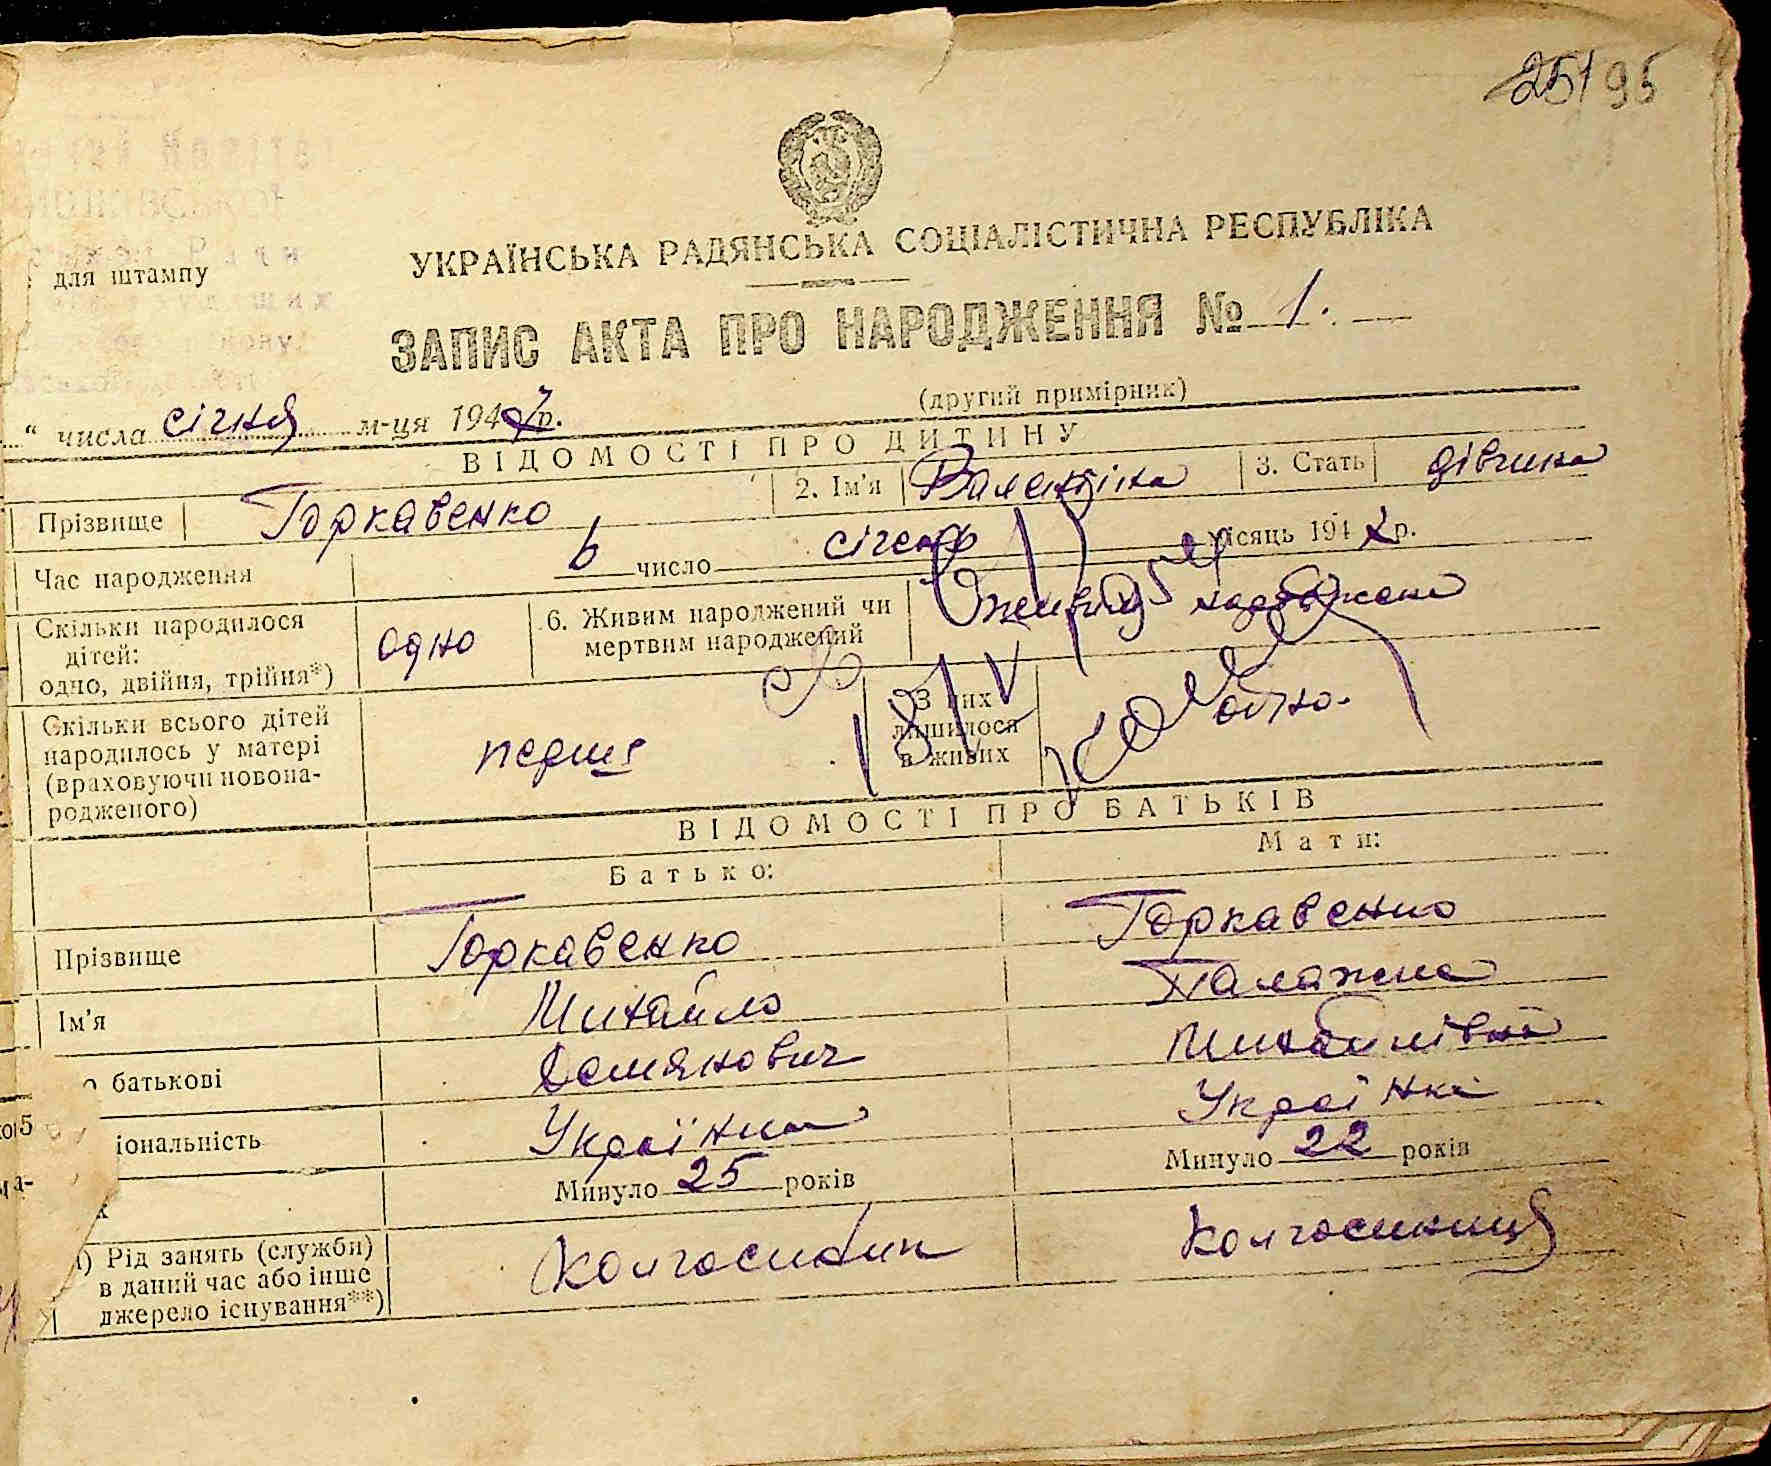 25195
УКРАЇНСЬКА РАДЯНСЬКА СОЦІАЛІСТИЧНА РЕСПУБЛІКА
для штампу
ЗАПИС АКТА ПРО НАРОДЖЕННЯ № 1.
(другий примірник)
“ числа січня м-ця 1947 р.
ВІДОМОСТІ ПРО ДИТИНУ
Прізвище Горкавенко 2. Ім'я Валентіна 3. Стать дівчина
Час народження 6 число січень місяць 194 р.
Скільки народилося дітей: одно, двійня, трійня*) одно 6. Живим народжений чи мертвим народжений
Скільки всього дітей народилось у матері (враховуючи новонародженого) перше З них лишилося в живих одно.
ВІДОМОСТІ ПРО БАТЬКІВ
Батько: Мати:
Прізвище Горкавенко Горкавенко
Ім'я Михайло Палажка
батькові Демянович Михайлівна
іональність Українець Українка
Минуло 25 років Минуло 22 років
Рід занять (служби) в даний час або інше джерело існування**) Колгоспник Колгоспниця